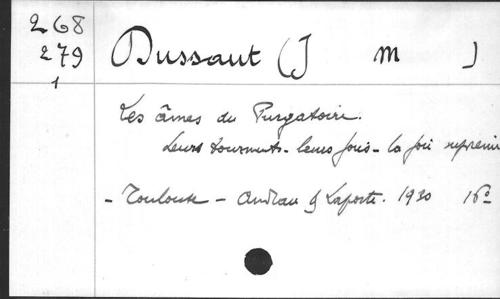 268
279
1
Dussaut (J M )
Les âmes du Purgatoire.
Leurs tourments - leurs joies - la joie
- Toulouse - Andrau & Laporte. 1930 16º